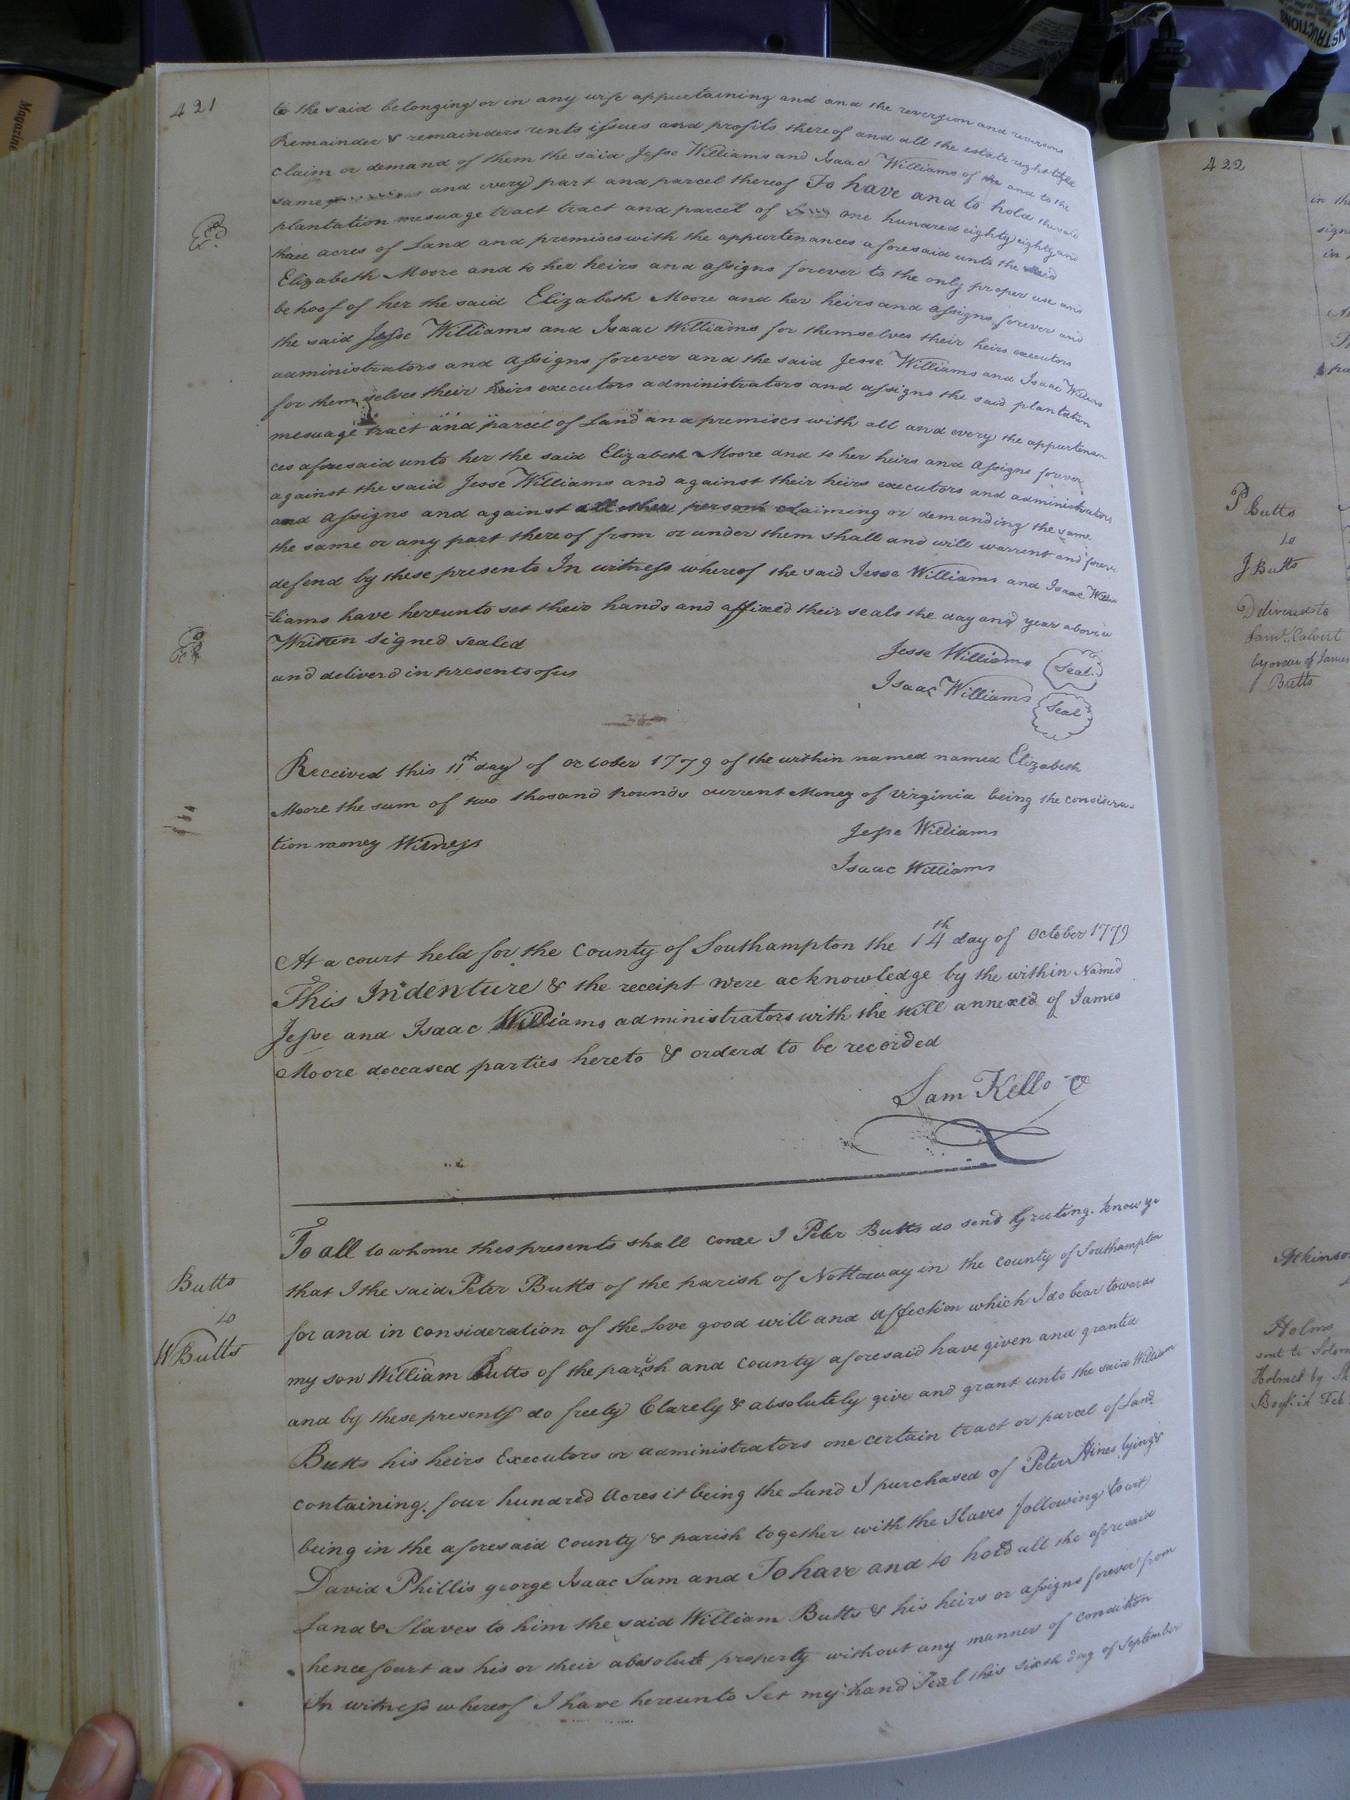 421
to the said belonging or in any wise appurtaining and and the reversion and reversions
Remainder & remainders rents issues and profits thereof and all the estate right title
claim or demand of them the said Jesse Williams and Isaac Williams of the and to the
same and every part and parcel thereof To have and to hold the said
plantation mesuage tract tract and parcel of one hundred eighty eighty and
three acres of Land and premises with the appurtenances aforesaid unto the said
Elizabeth Moore and to her heirs and assigns forever to the only proper use and
behoof of her the said Elizabeth Moore and her heirs and assigns forever and
the said Jesse Williams and Isaac Williams for themselves their heirs executors
administrators and assigns forever and the said Jesse Williams and Isaac Williams
for them selves their heirs executors administrators and assigns the said plantation
mesuage tract and parcel of Land and premises with all and every the appurtenan
ces aforesaid unto her the said Elizabeth Moore and to her heirs and assigns forever
against the said Jesse Williams and against their heirs executors and administrators
and assigns and against all other persons claiming or demanding the same
the same or any part thereof from or under them shall and will warrent and forever
defend by these presents In witness whereof the said Jesse Williams and Isaac Wil
liams have hereunto set their hands and affixed their seals the day and year above
Written signed sealed
and deliverd in presents of us
Jesse Williams Seal
Isaac Williams Seal
Received this 11th day of October 1779 of the within named named Elizabeth
Moore the sum of two thosand pounds current Money of Virginia being the considera-
tion money Witness
Jesse Williams
Isaac Williams
At a court held for the County of Southampton the 14th day of October 1779
This Indenture & the receipt were acknowledge by the within Named
Jesse and Isaac Williams administrators with the will annexed of James
Moore deceased parties hereto & orderd to be recorded
Sam Kello
Butts
to
W Butts
To all to whome thes presents shall come I Peter Butts do send Greeting. know ye
that I the said Peter Butts of the parish of Nottoway in the county of Southampton
for and in consideration of the Love good will and affection which I do bear towards
my son William Butts of the parish and County aforesaid have given and granted
and by these presents do freely Clarely & absolutely give and grant unto the said William
Butts his heirs Executors or administrators one certain tract or parcel of Land
containing four hundred Acres it being the Land I purchased of Peter Hines lying &
being in the aforesaid County & parish together with the Slaves following to wit
David Phillis george Isaac Sam and To have and to hold all the aforesaid
Land & Slaves to him the said William Butts & his heirs or assigns forever from
hence fourt as his or their absolute property without any manner of condition
In witness whereof I have hereunto Set my hand Seal this sixth day of September
422
in the
in
P Butts
to
J Butts
Delivered to
Saml. Calvert
by order of James
Butts
Atkinson
Holms
sent to
Holmes by